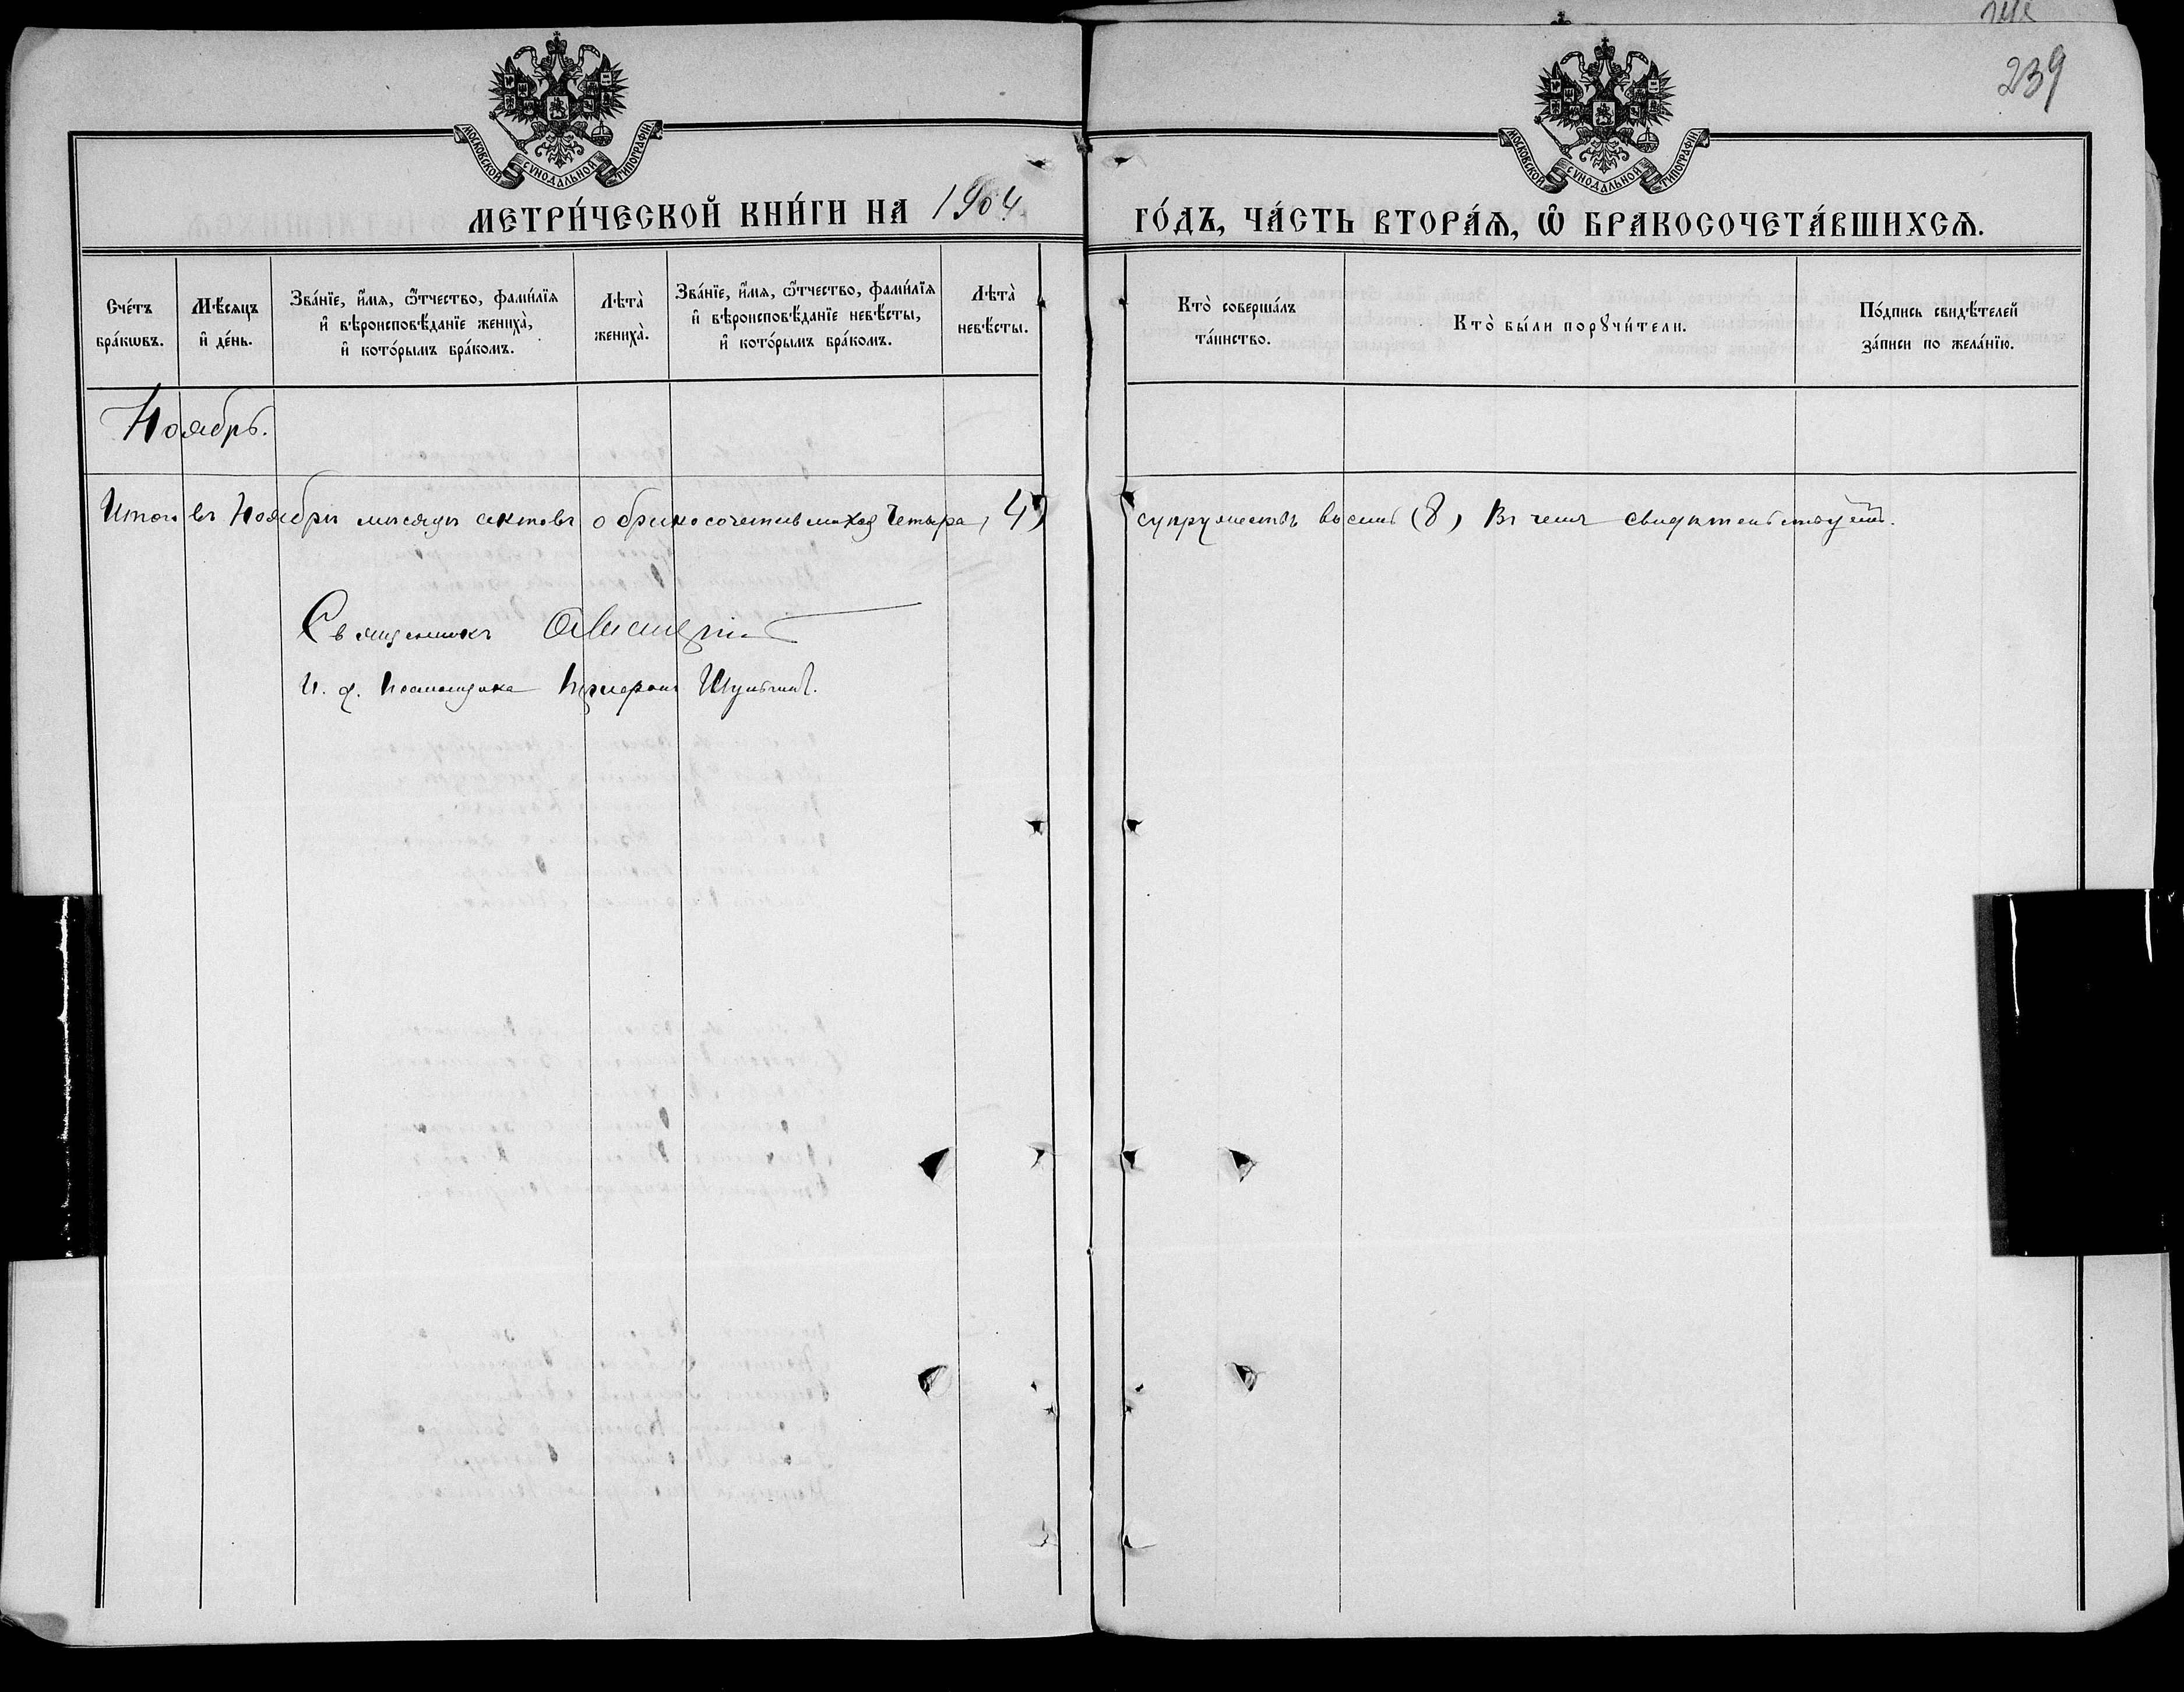 239
МОСКОВСКОЙ СѴНОДАЛЬНОЙ ТИПОГРАФІИ.
МОСКОВСКОЙ СѴНОДАЛЬНОЙ ТИПОГРАФІИ.
МЕТРИ́ЧЕСКОЙ КНИ́ГИ НА 1904
ГО́ДЪ, ЧА́СТЬ ВТОРА́Ѧ, Ѽ БРАКОСОЧЕТА́ВШИХСѦ.
Сче́тъ бра́кѡвъ.
Мѣ́сяцъ и҆ де́нь.
Зва́нїе, и҆́мя, ѻ҆́тчество, фами́лїя и҆ вѣроисповѣ́данїе жениха̀, и҆ кото́рымъ бра́комъ.
Лѣта̀ жениха̀.
Зва́нїе, и҆́мя, ѻ҆́тчество, фами́лїя и҆ вѣроисповѣ́данїе невѣ́сты, и҆ кото́рымъ бра́комъ.
Лѣта̀ невѣ́сты.
Кто̀ соверша́лъ та́инство.
Кто̀ бы́ли порꙋчи́тели.
По́дпись свидѣ́телей за́писи по жела́нїю.
Ноябрь.
Итого въ Ноябрѣ мѣсяцѣ актовъ о бракосочетавшихся Четыре (4) супружествъ восемь (8) Въ чемъ свидѣтельствуетъ.
Священникъ
И. д. Псаломщика Шульгинъ.